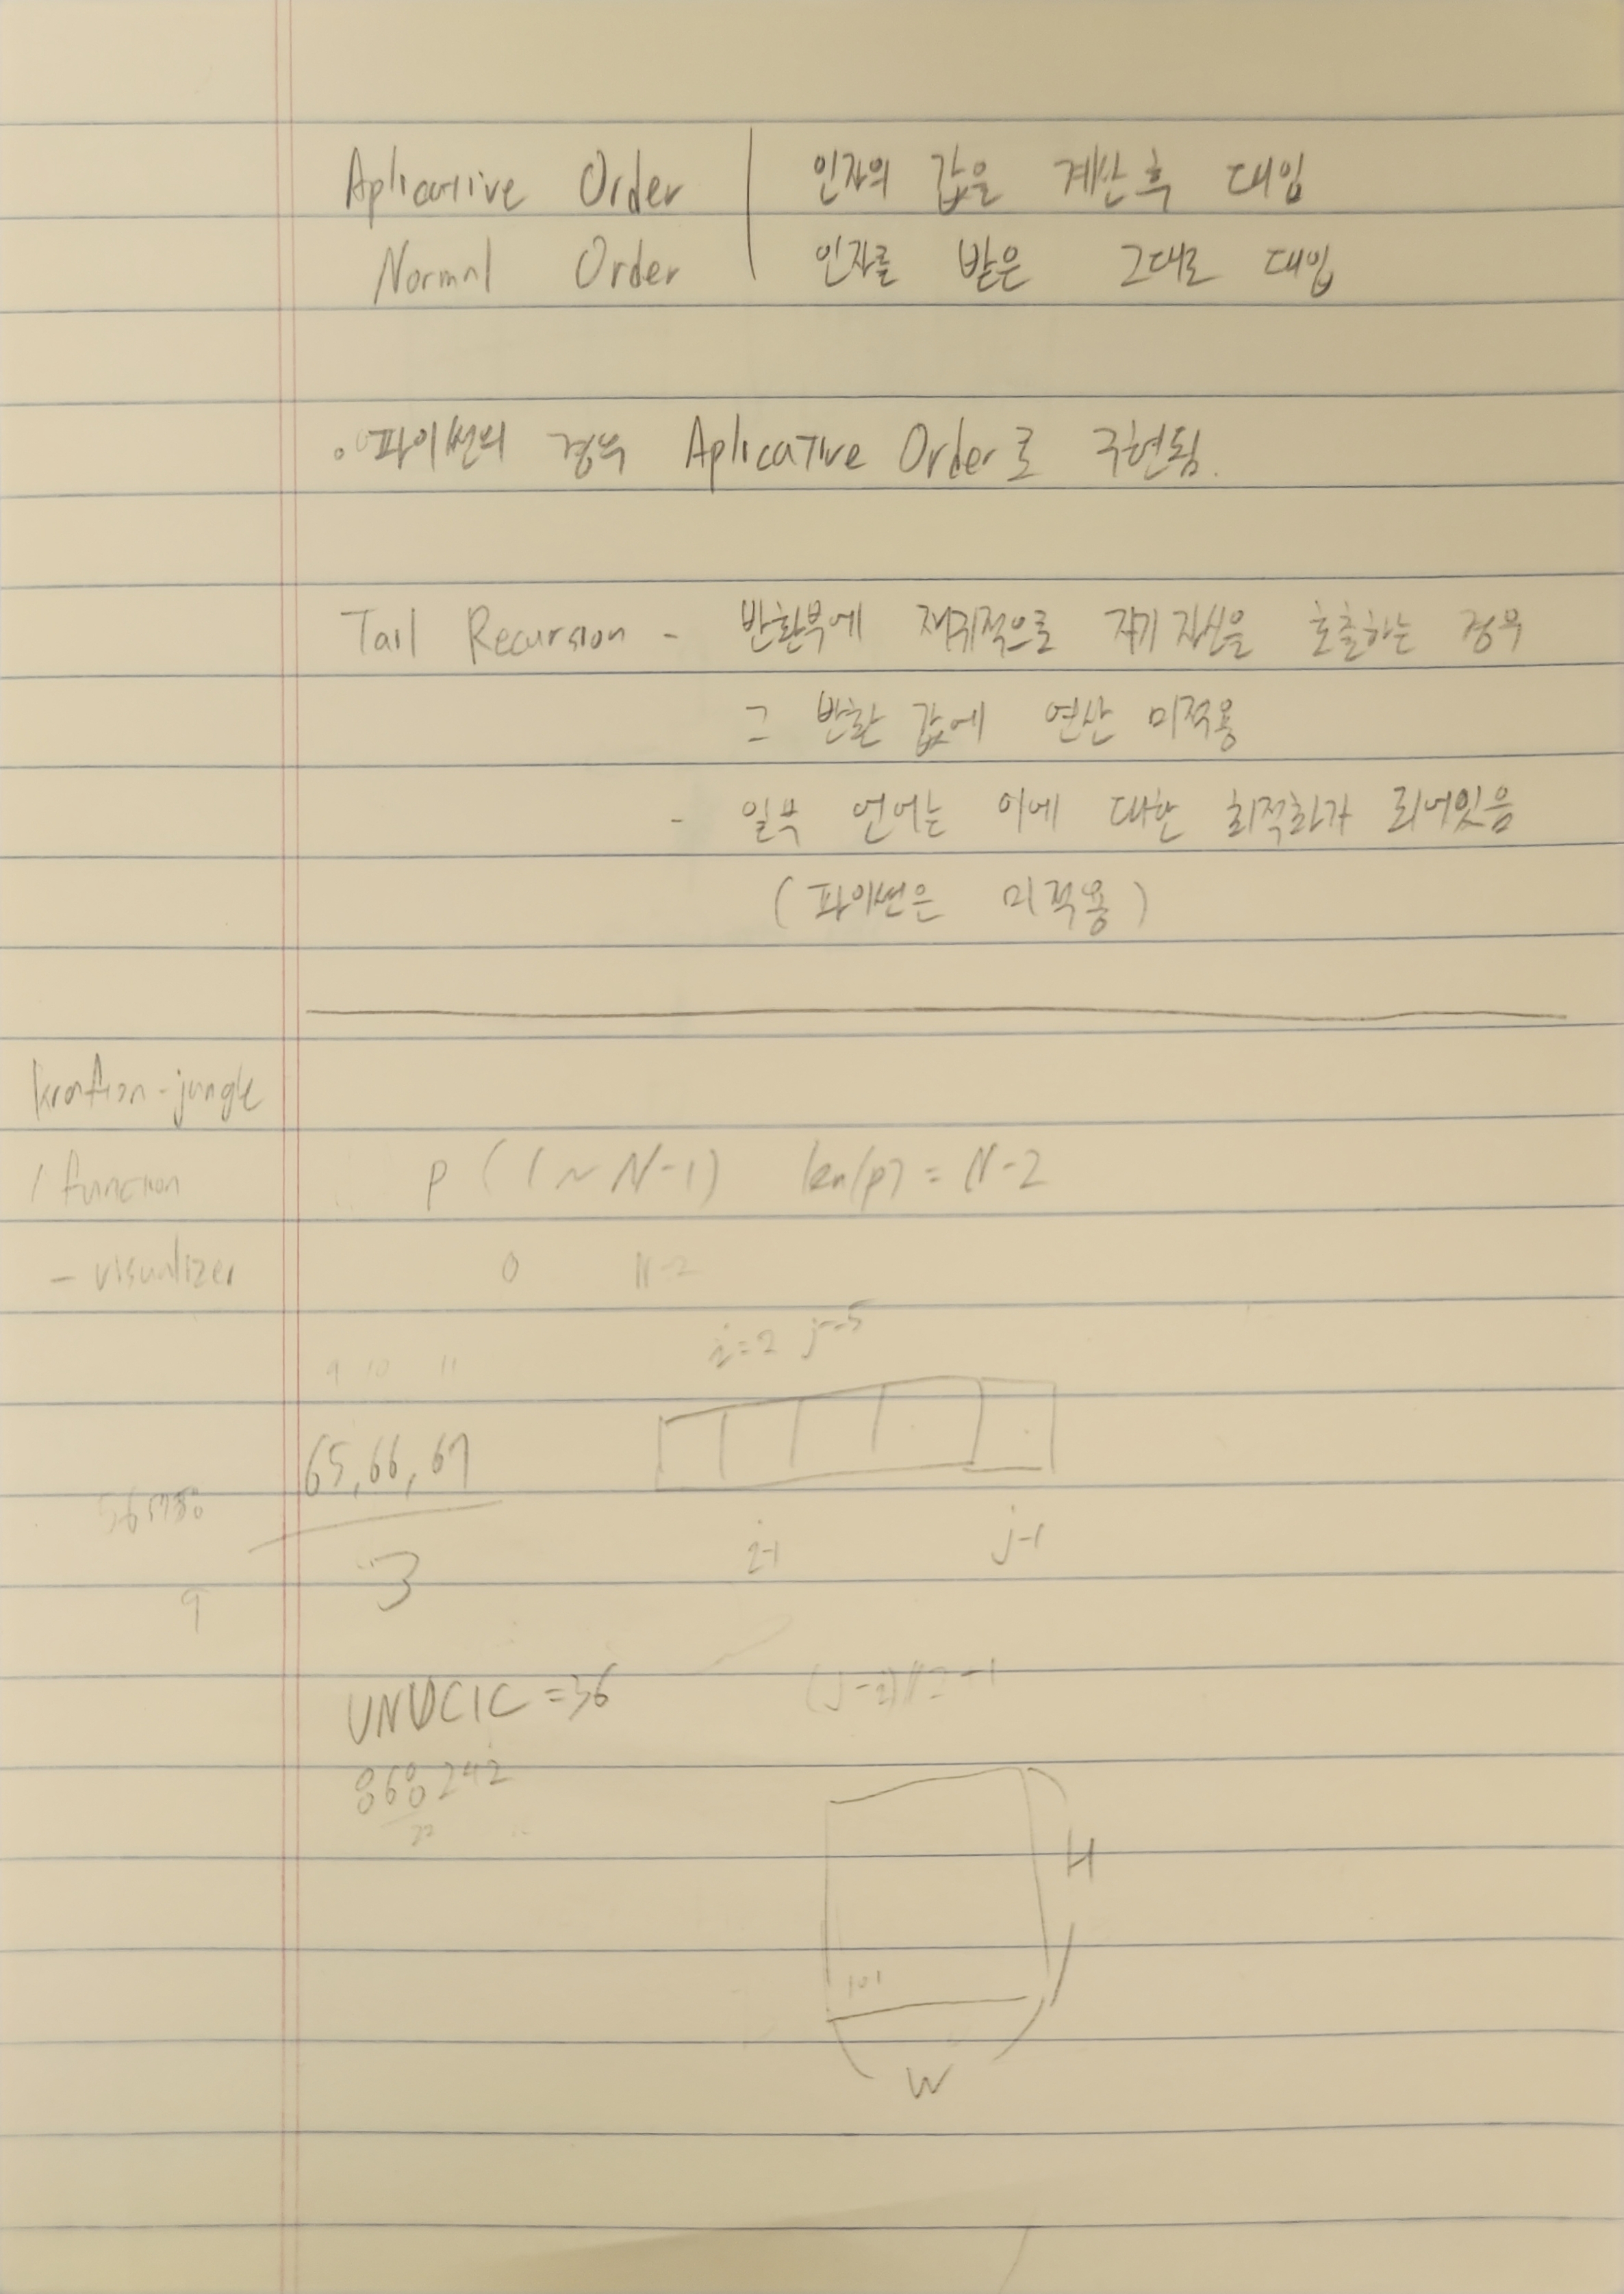 Aplicative Order | 인자의 값을 계산 후 대입
Normal Order | 인자를 받은 그대로 대입
파이썬의 경우 Aplicative Order로 구현됨.
Tail Recursion - 반환부에 재귀적으로 자기 자신을 호출하는 경우
그 반환 값에 연산 미적용
- 일부 언어는 이에 대한 최적화가 되어있음
(파이썬은 미적용)
krafton-jungle
/ function
- visualizer
p (1 ~ N-1) len(p) = N-2
0 N-2
i=2 j=5
9 10 11
65, 66, 67
3
9
i-1 j-1
UNUCIC = 36
868242
H
W